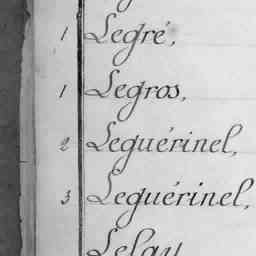 1 Legré,
1 Legros,
2 Leguérinel,
3 Leguérinel,
Lelay